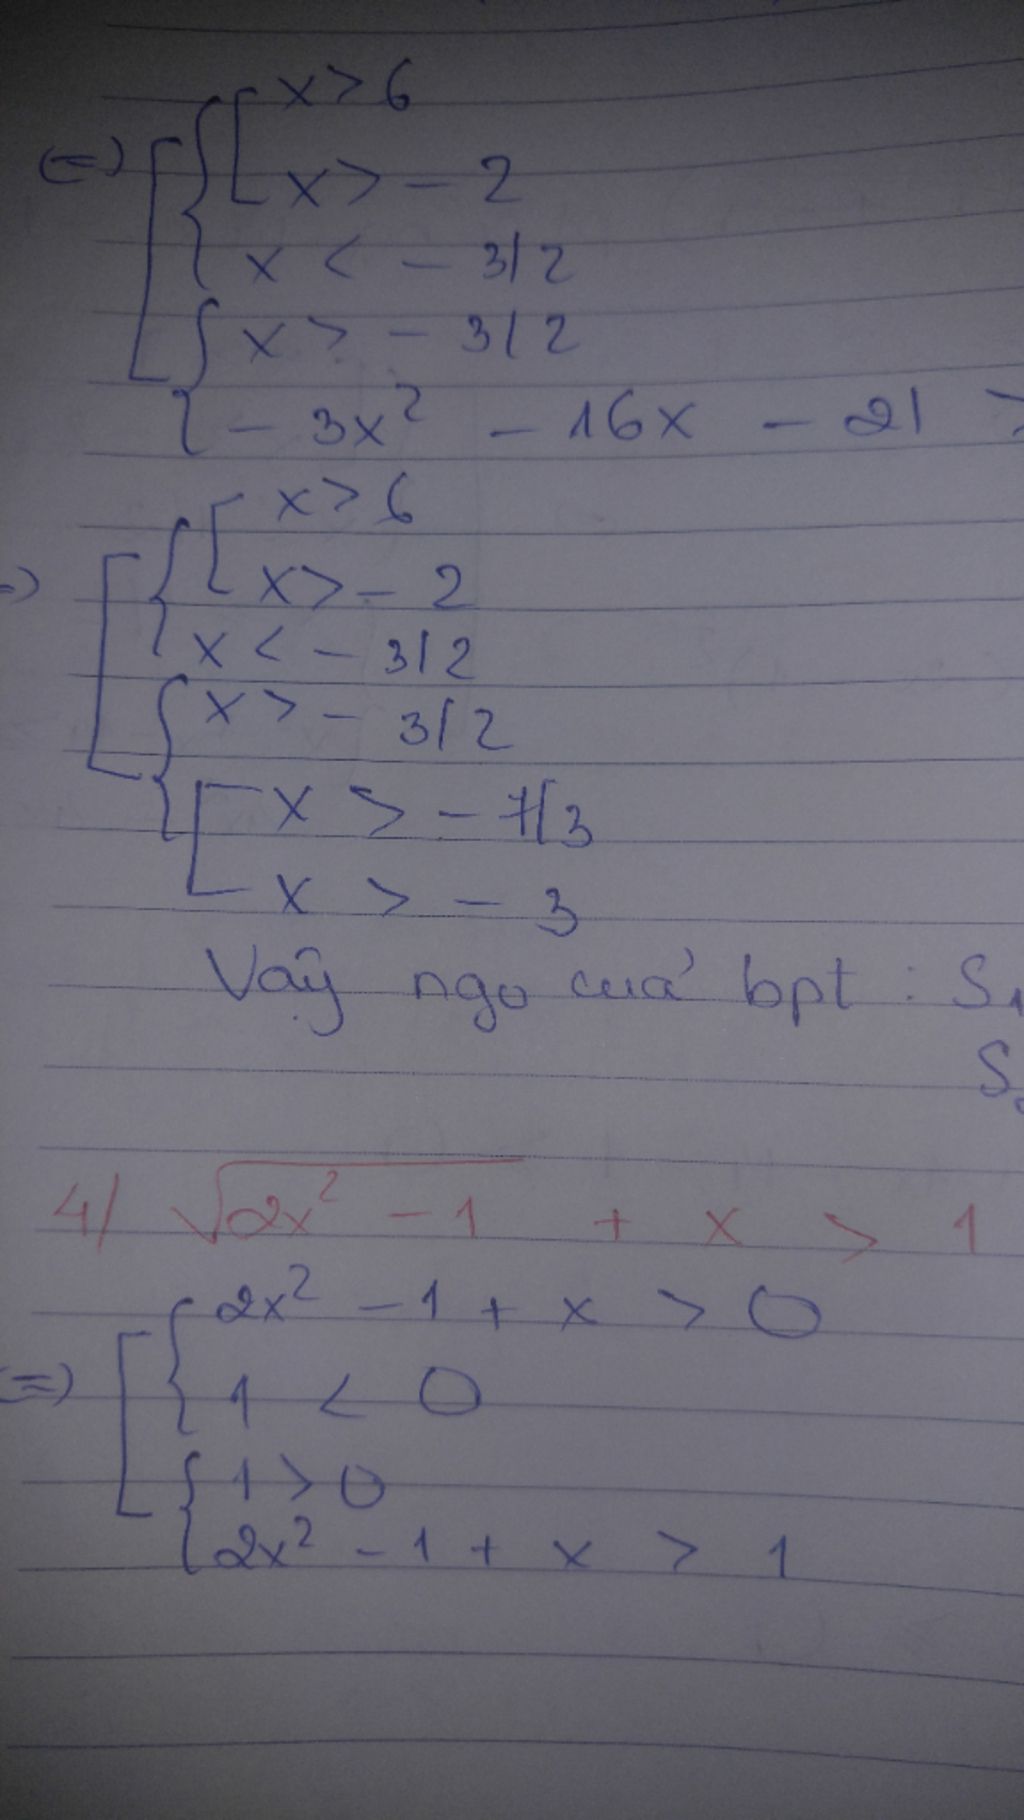 x > 6
(=)
x > - 2
x < - 3/2
x > - 3/2
- 3x² - 16x - 21 >
x > 6
=)
x > - 2
x < - 3/2
x > - 3/2
x > - 7/3
x > - 3
Vậy ngo cuả bpt : S₁
S
4/ √2x² - 1 + x > 1
2x² - 1 + x > 0
(=)
1 < 0
1 > 0
2x² - 1 + x > 1